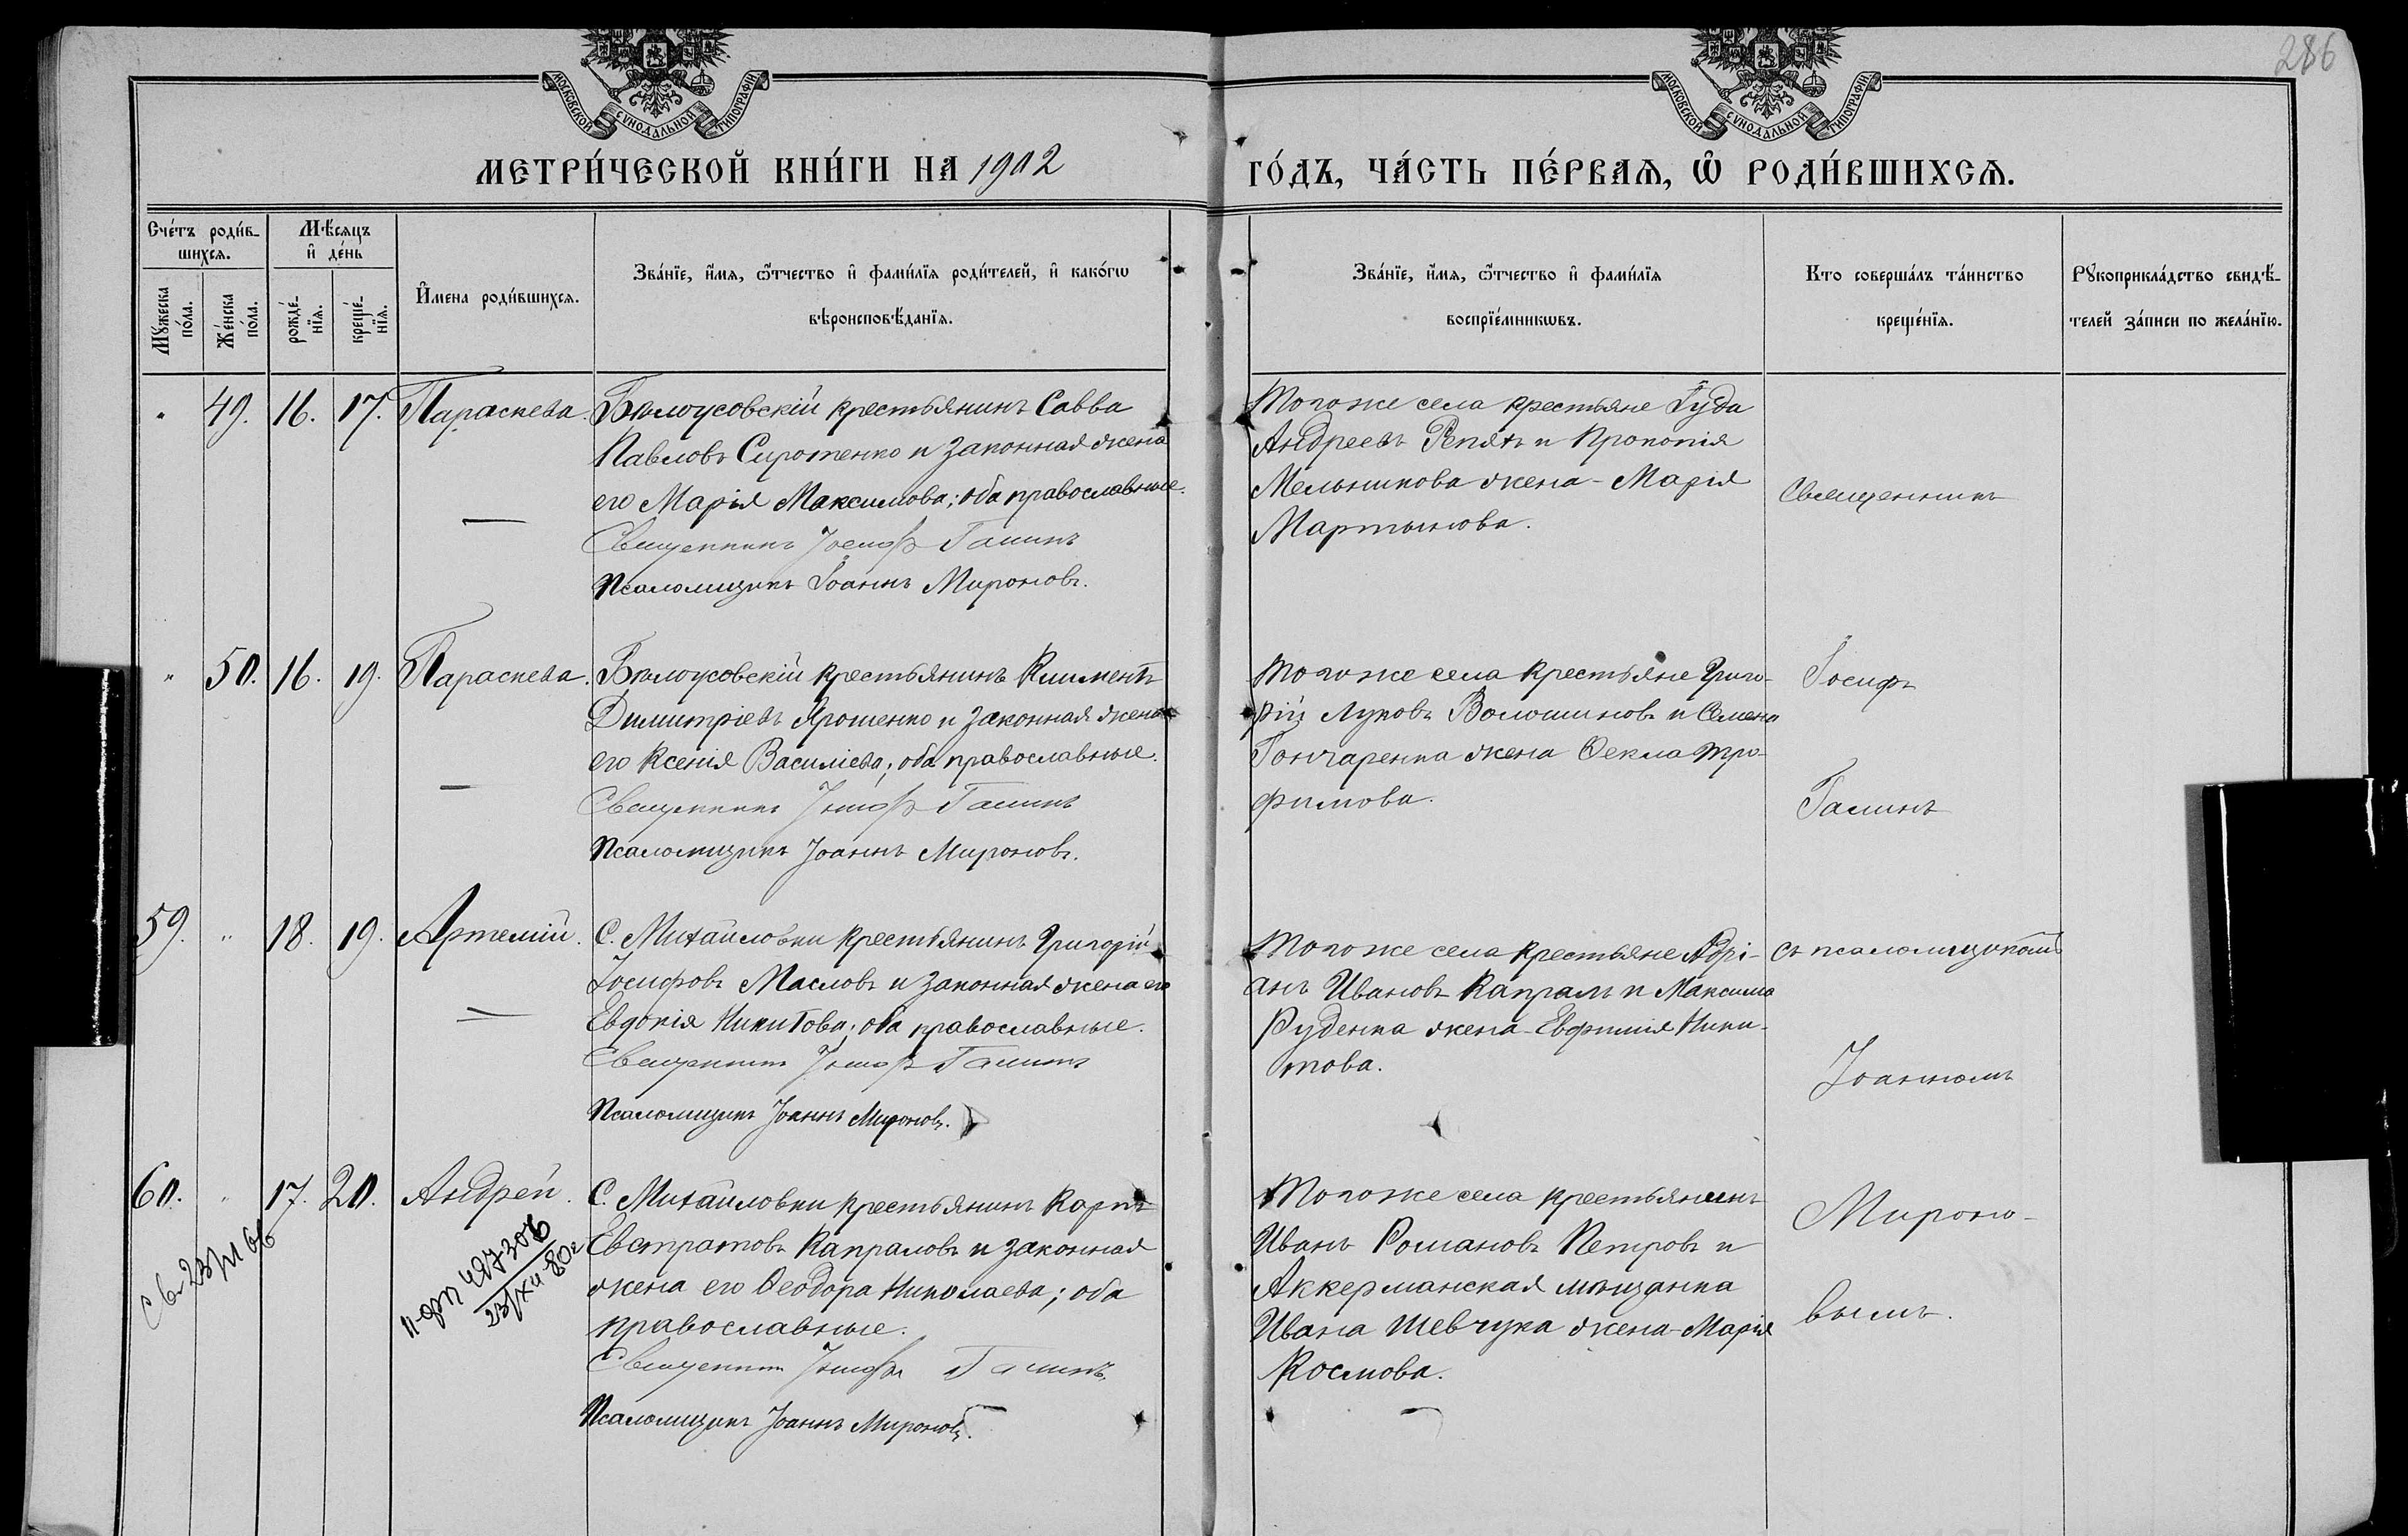 286
МОСКОВСКОЙ СѴНОДАЛЬНОЙ ТИПОГРАФІИ
МОСКОВСКОЙ СѴНОДАЛЬНОЙ ТИПОГРАФІИ
МЕТРИ́ЧЕСКОЙ КНИ́ГИ НА 1902
ГО́ДЪ, ЧА́СТЬ ПЕ́РВАѦ, Ѽ РОДИ́ВШИХСѦ.
Сче́тъ роди́в-
шихсѧ.
Мѣ́сѧцъ
и҆ де́нь
Мꙋ́жеска
по́ла.
Же́нска
по́ла.
рожде́-
нїѧ.
креще́-
нїѧ.
И҆мена роди́вшихсѧ.
Зва́нїе, и҆́мѧ, ѻ҆́тчество и҆ фами́лїѧ роди́телей, и҆ како́гѡ
вѣроисповѣ́данїѧ.
Зва́нїе, и҆́мѧ, ѻ҆́тчество и҆ фами́лїѧ
воспрїе́мникѡвъ.
Кто соверша́лъ та́инство
креще́нїѧ.
Рꙋкоприкла́дство свидѣ́-
телей за́писи по жела́нїю.
" 49. 16. 17. Параскева.
Бѣлоусовскій крестьянинъ Савва
Павловъ Сиротенко и законная жена
его Марія Максимова; оба православные.
Священникъ Іосифъ Галинъ
Псаломщикъ Іоаннъ Мироновъ.
Тогоже села крестьяне Іуда
Андреевъ Репять и Прокопія
Мельникова жена - Марія
Мартынова.
Священникъ
" 50. 16. 19. Параскева.
Бѣлоусовскій крестьянинъ Климентъ
Димитріевъ Ярошенко и законная жена
его Ксенія Василіева; оба православные.
Священникъ Іосифъ Галинъ
Псаломщикъ Іоаннъ Мироновъ.
Тогоже села крестьяне Григо-
рій Луковъ Волошиновъ и Семена
Гончаренка жена Ѳекла Тро-
фимова.
Іосифъ
Галинъ
59. " 18. 19. Артемій.
С. Михайловки крестьянинъ Григорій
Іосифовъ Масловъ и законная жена его
Евдокія Никитова; оба православные.
Священникъ Іосифъ Галинъ
Псаломщикъ Іоаннъ Мироновъ.
Тогоже села крестьяне Адрі-
анъ Ивановъ Капралъ и Максима
Руденка жена - Евфимія Ники-
това.
съ псаломщикомъ
Іоанномъ
60. " 17. 20. Андрей.
С. Михайловки крестьянинъ Карпъ
Евстратовъ Капраловъ и законная
жена его Ѳеодора Николаева; оба
православные.
Священникъ Іосифъ Галинъ.
Псаломщикъ Іоаннъ Мироновъ.
Тогоже села крестьянинъ
Иванъ Романовъ Петровъ и
Аккерманская мѣщанка
Ивана Шевчука жена - Марія
Космова.
Мироно-
вымъ.
23/XII 80г